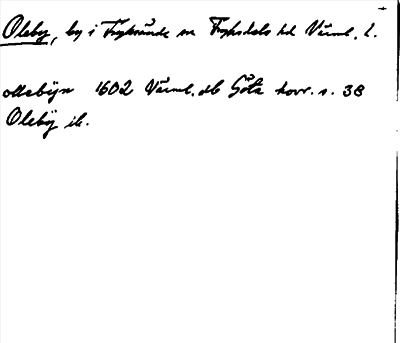 Oleby, by i Frykerude sn Fryksdals hd Värml. l.
ollebÿn 1602 Värml. dh Göta hovr. s. 38
Olebÿ ib.